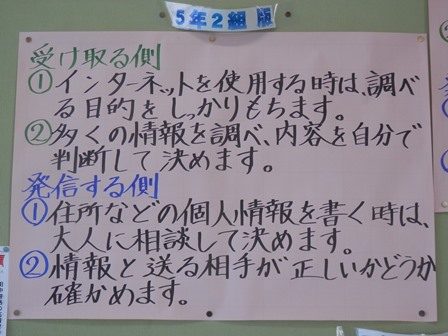 5年2組 版
受け取る側
①インターネットを使用する時は、調べ
る目的をしっかりもちます。
②多くの情報を調べ、内容を自分で
判断して決めます。
発信する側
①住所などの個人情報を書く時は、
大人に相談して決めます。
②情報と送る相手が正しいかどうか
確かめます。